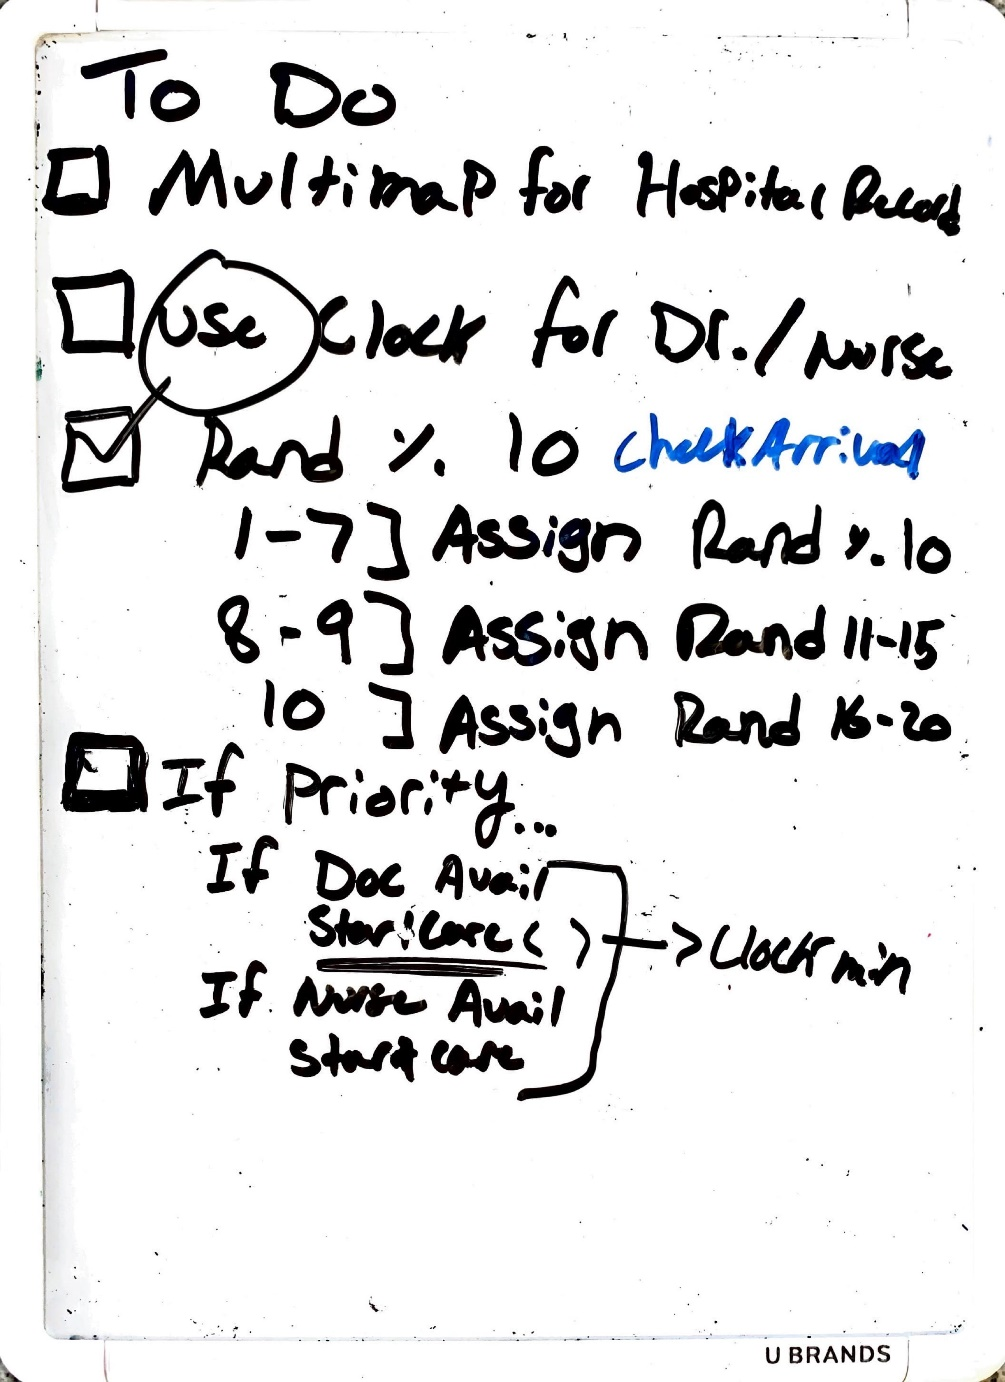 To Do
Multimap for Hospital Record
Use Clock for Dr./Nurse
Rand % 10 checkArrival
1-7] Assign Rand % 10
8-9] Assign Rand 11-15
10 ] Assign Rand 16-20
If Priority...
If Doc Avail
Startcare( ) -> Clock min
If Nurse Avail
startcare
U BRANDS